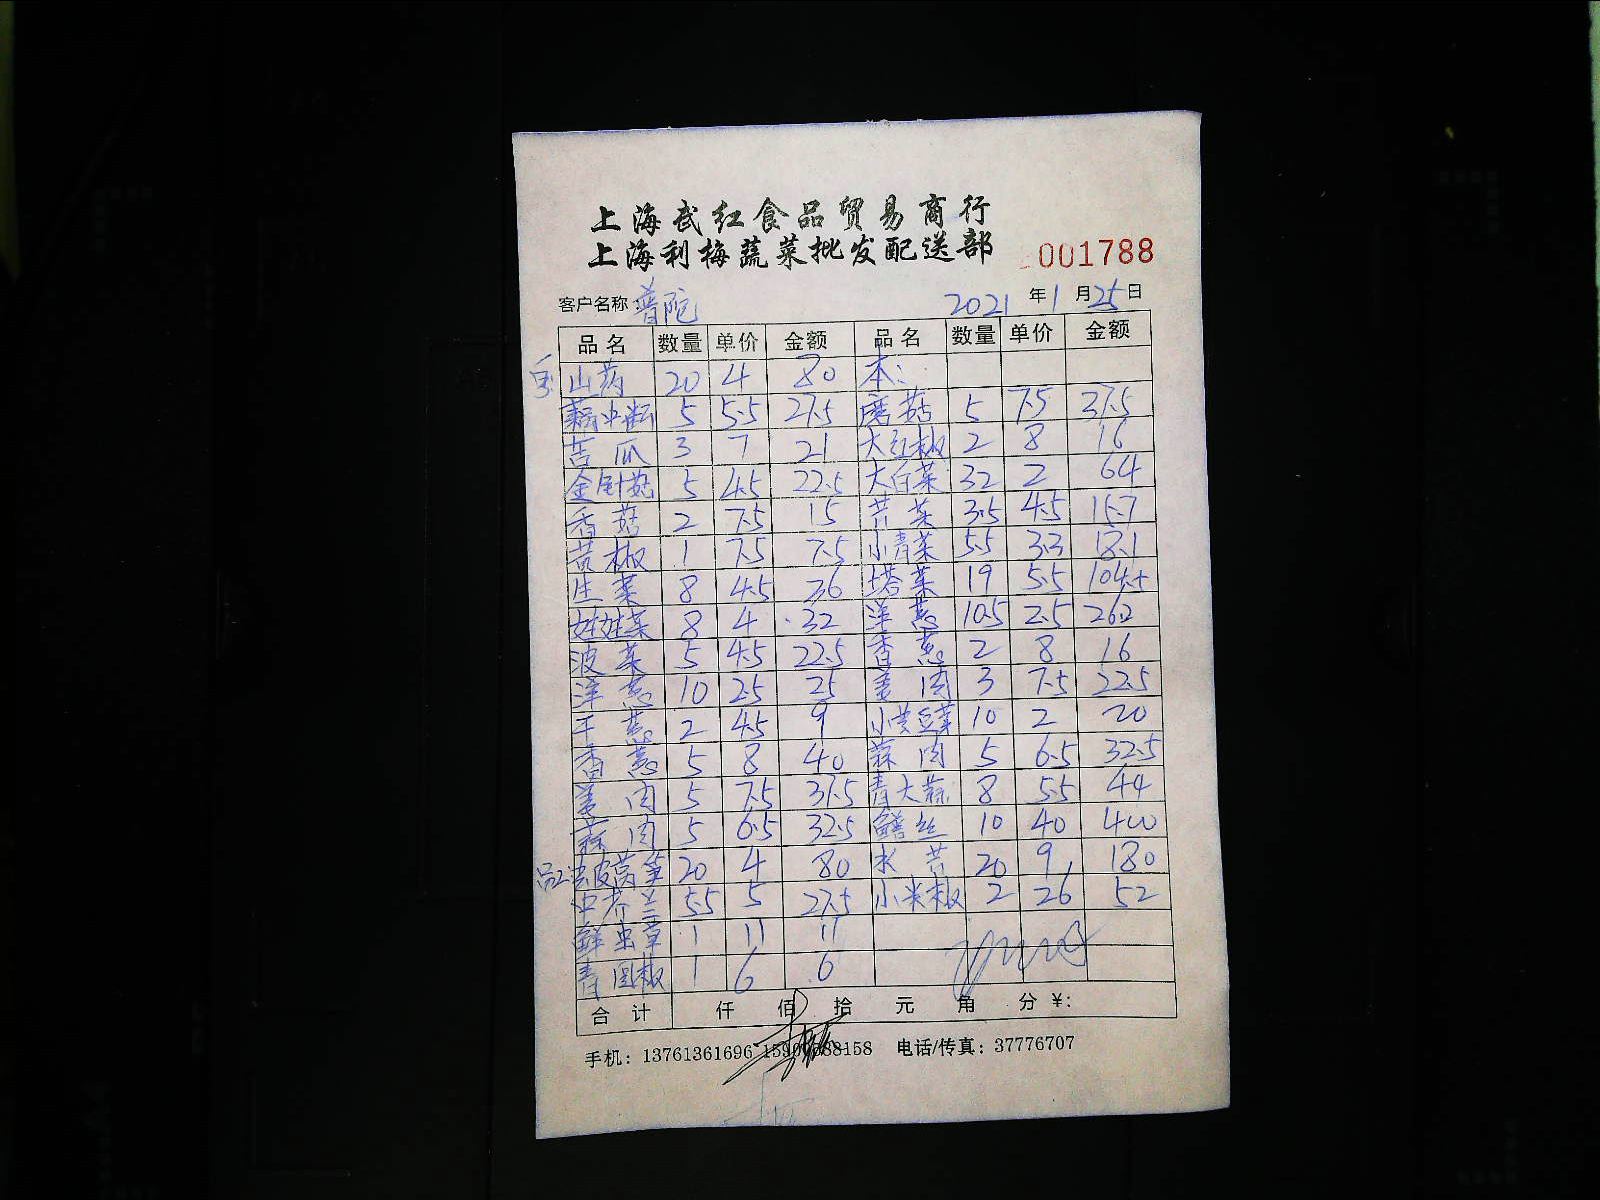 上海武红食品贸易商行
上海利梅蔬菜批发配送部 001788
客户名称：普陀 2021年1月25日
品名 数量 单价 金额 品名 数量 单价 金额
山药 20 4 80 本：
藕中断 5 5.5 27.5 磨菇 5 7.5 37.5
苦瓜 3 7 21 大红椒 2 8 16
金针菇 5 4.5 22.5 大白菜 32 2 64
香菇 2 7.5 15 芹菜 3.5 4.5 15.7
苦椒 1 7.5 7.5 小青菜 5.5 3.3 18.1
生菜 8 4.5 36 塔菜 19 5.5 104.5
娃娃菜 8 4 32 洋葱 10.5 2.5 26.2
波菜 5 4.5 22.5 香葱 2 8 16
洋葱 10 2.5 25 姜肉 3 7.5 22.5
干葱 2 4.5 9 小黄豆芽 10 2 20
香葱 5 8 40 蒜肉 5 6.5 32.5
姜肉 5 7.5 37.5 青大蒜 8 5.5 44
蒜肉 5 6.5 32.5 鳝丝 10 40 400
皮莴笋 20 4 80 水芹 20 9 180
中芥兰 5.5 5 27.5 小米椒 2 26 52
鲜虫草 1 11 11
青圆椒 1 6 6
合计 仟 佰 拾 元 角 分 ¥：
手机：13761361696 158158 电话/传真：37776707